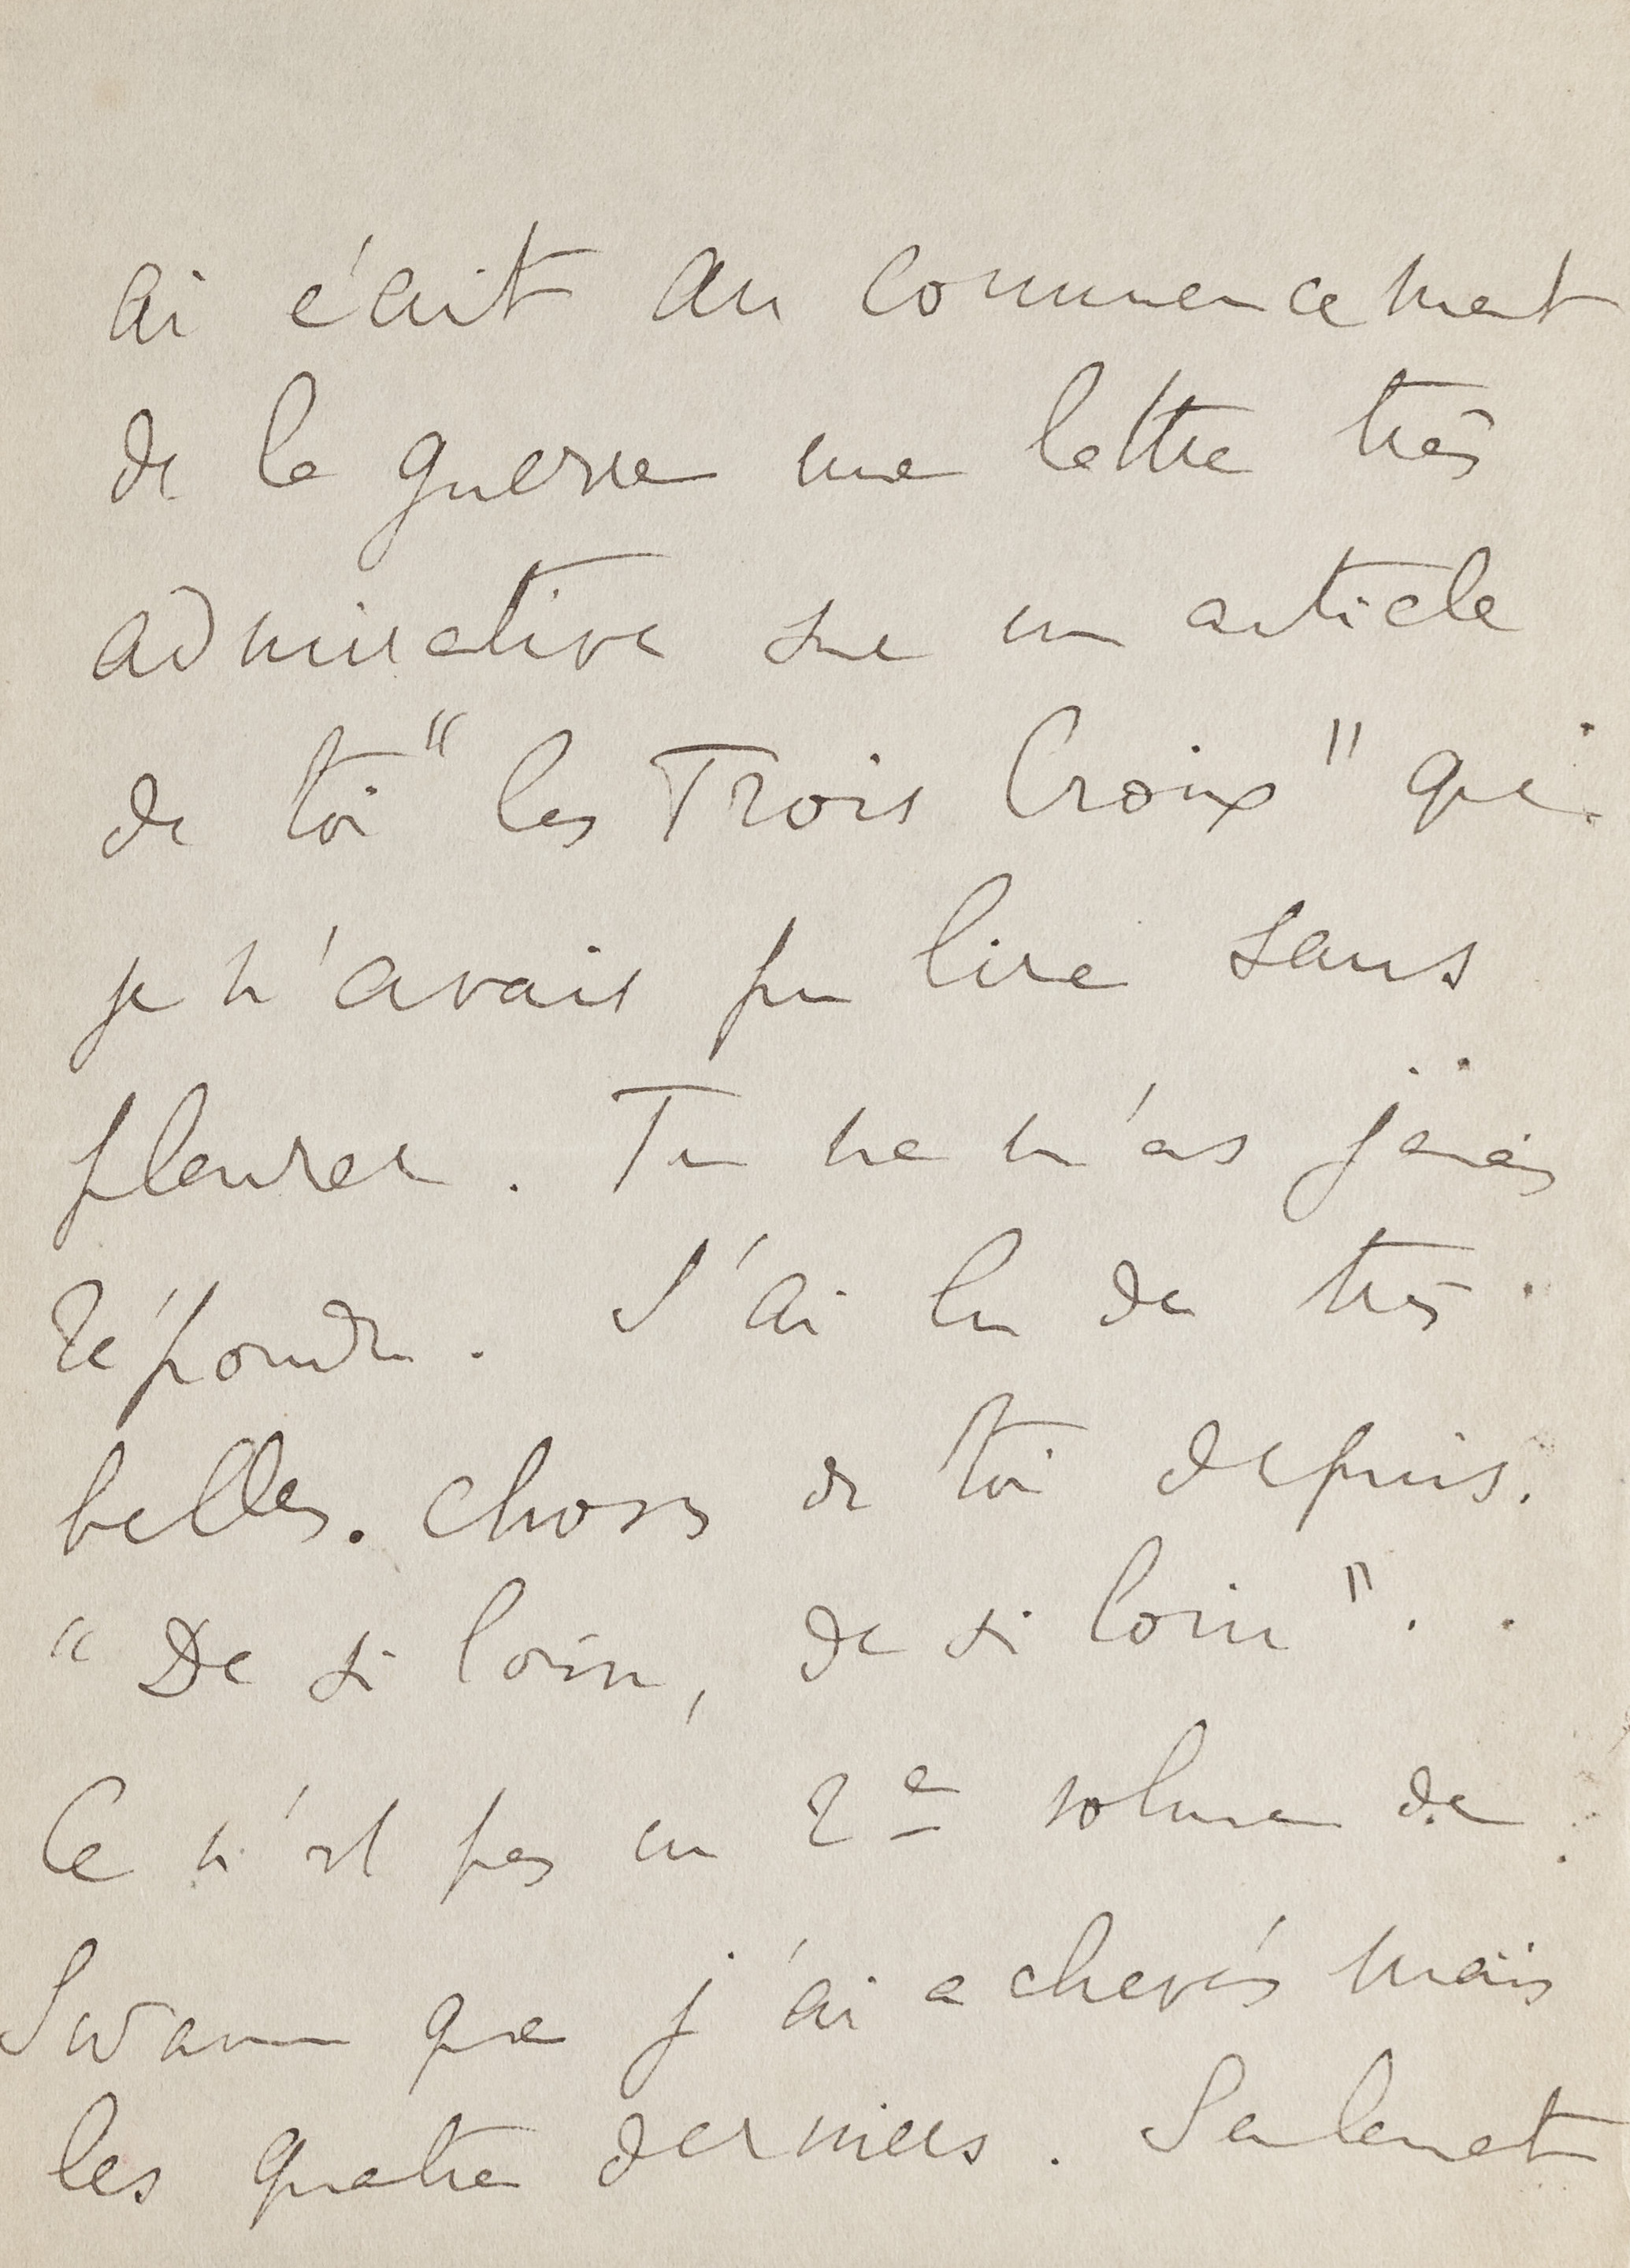 ai écrit au commencement
de la guerre une lettre très
admirative sur un article
de toi "les Trois Croix" que
je n'avais pu lire sans
pleurer. Tu ne m'as jamais
répondu. J'ai lu de très
belles choses de toi depuis.
"De si loin, de si loin".
Ce n'est pas un 2e volume de
Swann que j'ai achevés mais
les quatre derniers. Seulement